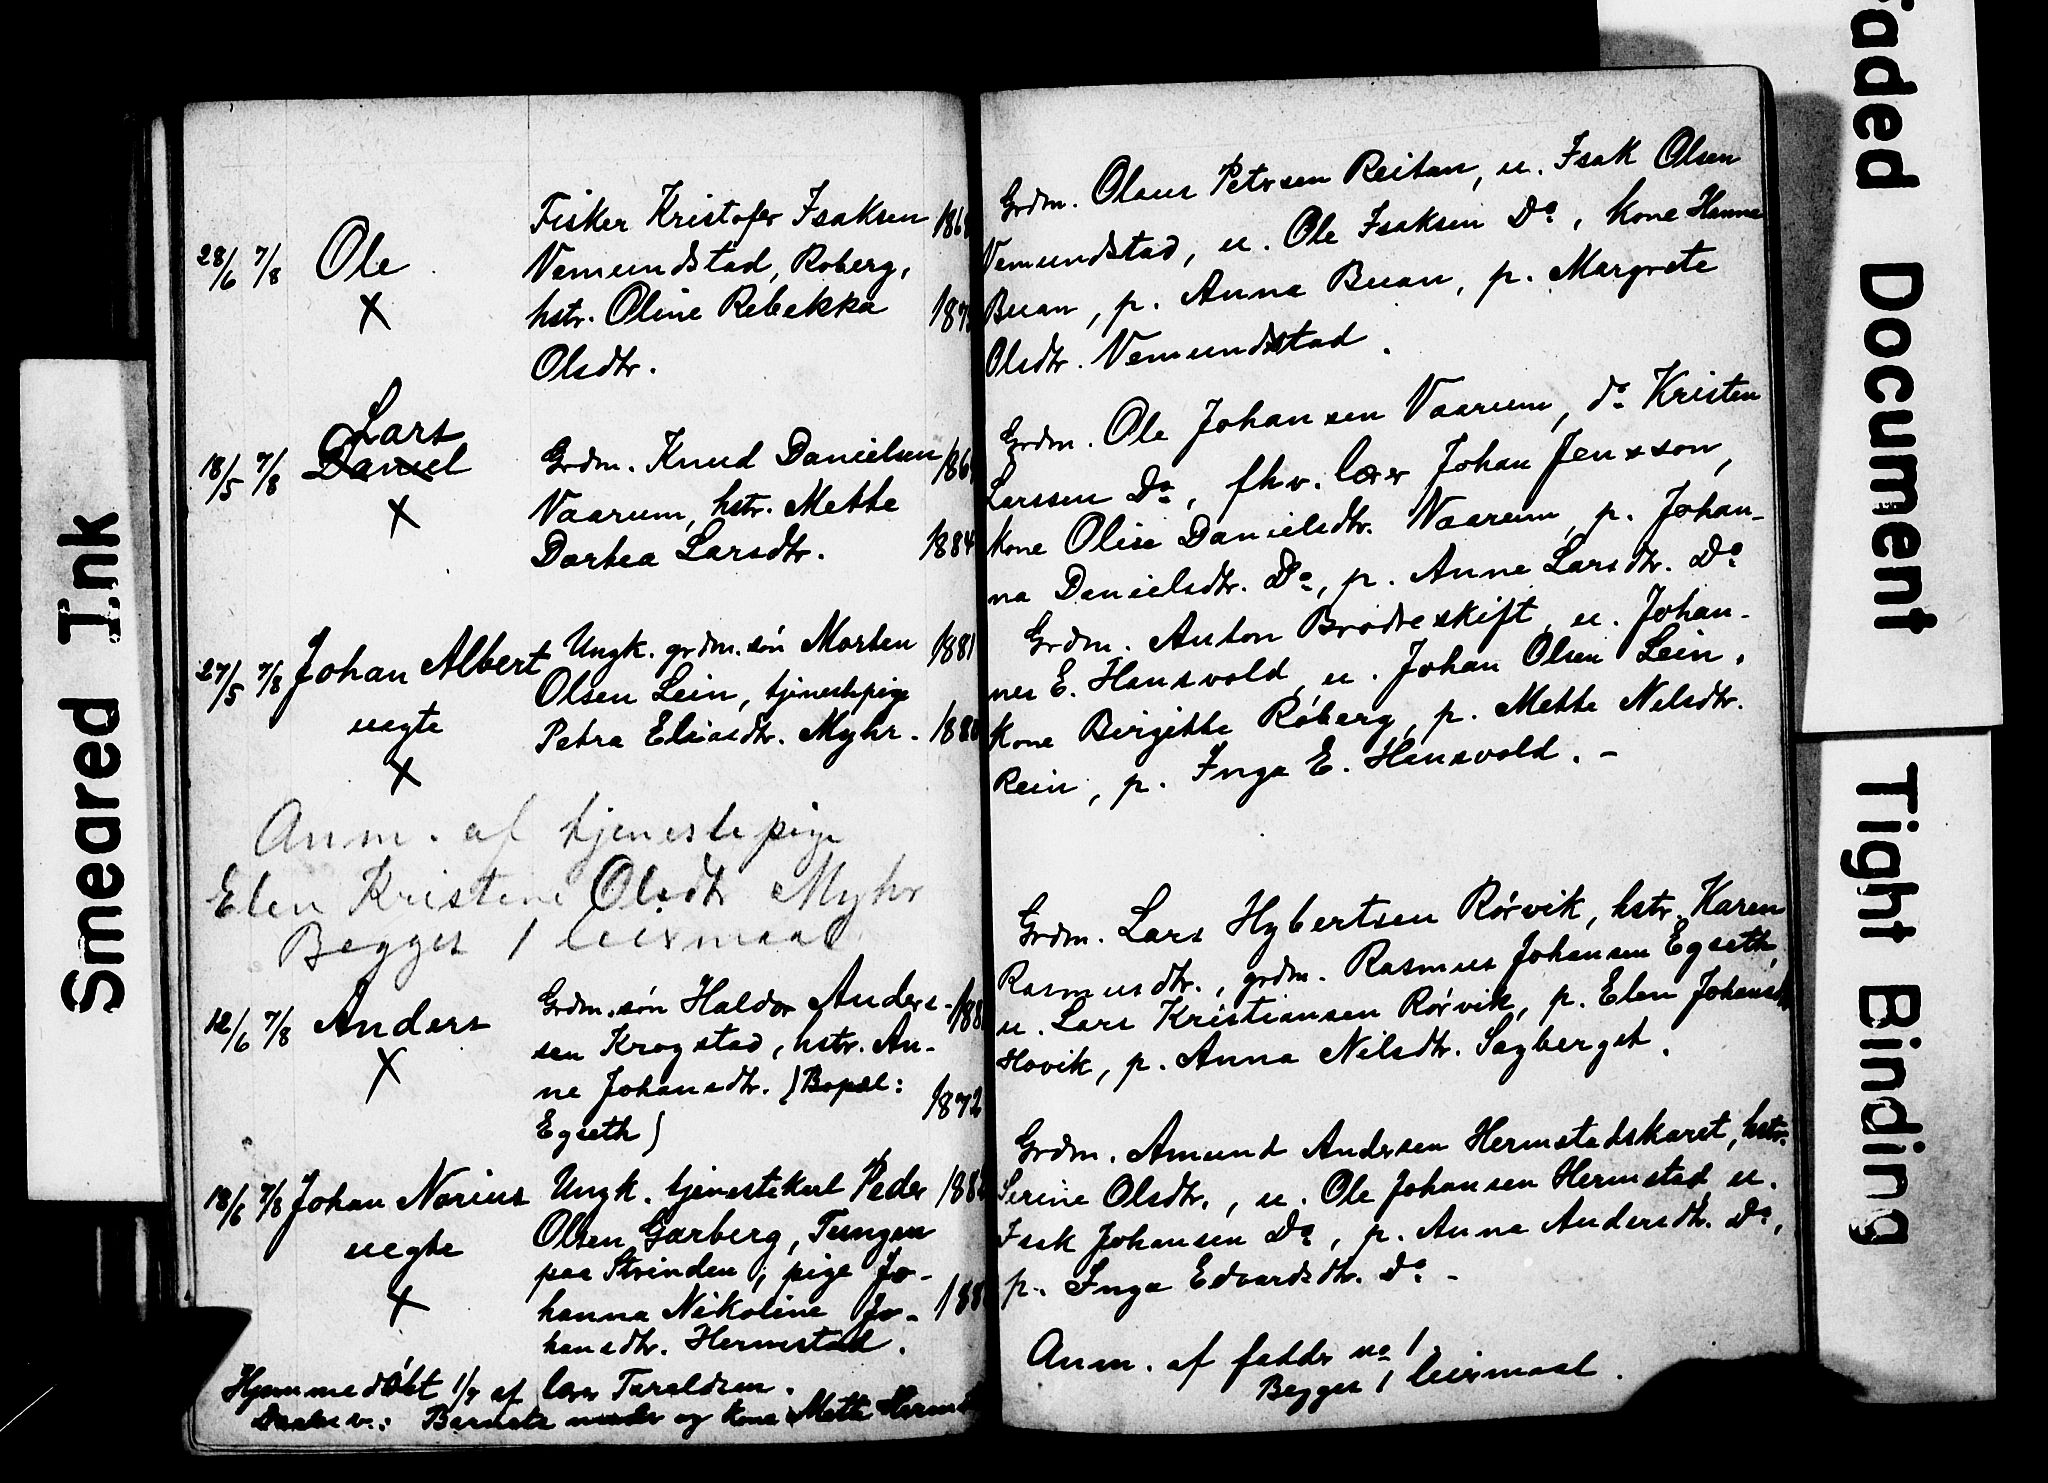 28/6 7/8 Ole
X
Fisker Kristofer Isaksen
Vemundstad, Roberg,
hstr. Oline Rebekka
Olsdtr.
Grdm. Olaus Petersen Reitan, u. Isak Olsen
Vemundstad, u. Ole Isaksen Do, kone Hanna
Buan, p. Anna Buan, p. Margrete
Olsdtr. Vemundstad.
Lars
18/5 7/8 Daniel
X
Grdm. Knud Danielsen
Vaarum, hstr. Mette
Dortea Larsdtr. 1884
Grdm. Ole Johansen Vaarum, do Kristen
Larssen Do, fhv. lærer Johan Jensson,
kone Olise Danielsdtr. Vaarum, p. Johan-
na Danielsdtr. Do, p. Anne Larsdtr. Do
27/5 7/8 Johan Albert
uegte
X
Ungk. grdm.søn Morten 1881
Olsen Lein, tjenestepige
Petra Eliasdtr. Myhr.
Grdm. Anton Brødreskift, u. Johan-
nes E. Hansvold, u. Johan Olsen Lein,
kone Birgitte Róberg, p. Mette Nelsdtr.
Rein, p. Inga E. Hansvold. -
Anm. af tjenestepige
Elen Kristine Olsdtr Myhr
Begges 1 leiermaal
12/6 7/8 Anders
X
Grdm.søn Haldor Anders-
sen Krogstad, hstr. An-
ne Johansdtr. (Bopæl: 1872
Egseth)
Grdm. Lars Hybertsen Rørvik, hstr. Karen
Rasmusdtr., grdm. Rasmus Johansen Egseth,
u. Lars Kristiansen Rørvik, p. Elen Johansdtr
Hovik, p. Anna Nilsdtr. Sagberget.
18/6 7/8 Johan Narius
uegte
X
Ungk. tjenestekarl Peder
Olsen Garberg, Tungen
paa Strinden, pige Jo-
hanna Nikoline Jo-
hansdtr. Hermstad.
Grdm. Amund Andersen Hermstadskaret, hstr.
Serine Olsdtr., u. Ole Johansen Hermstad u.
Isak Johansen Do, p. Anna Andersdtr. Do,
p. Inga Edvardsdtr. Do -
Hjemmedøbt 1/7 af lærer Taraldsen.
Daabsv.: Barnets moder og kone Mette
Anm. af fadder no 1.
Begges 1 leiermaal.
Smeared Ink
Faded Document
Tight Binding